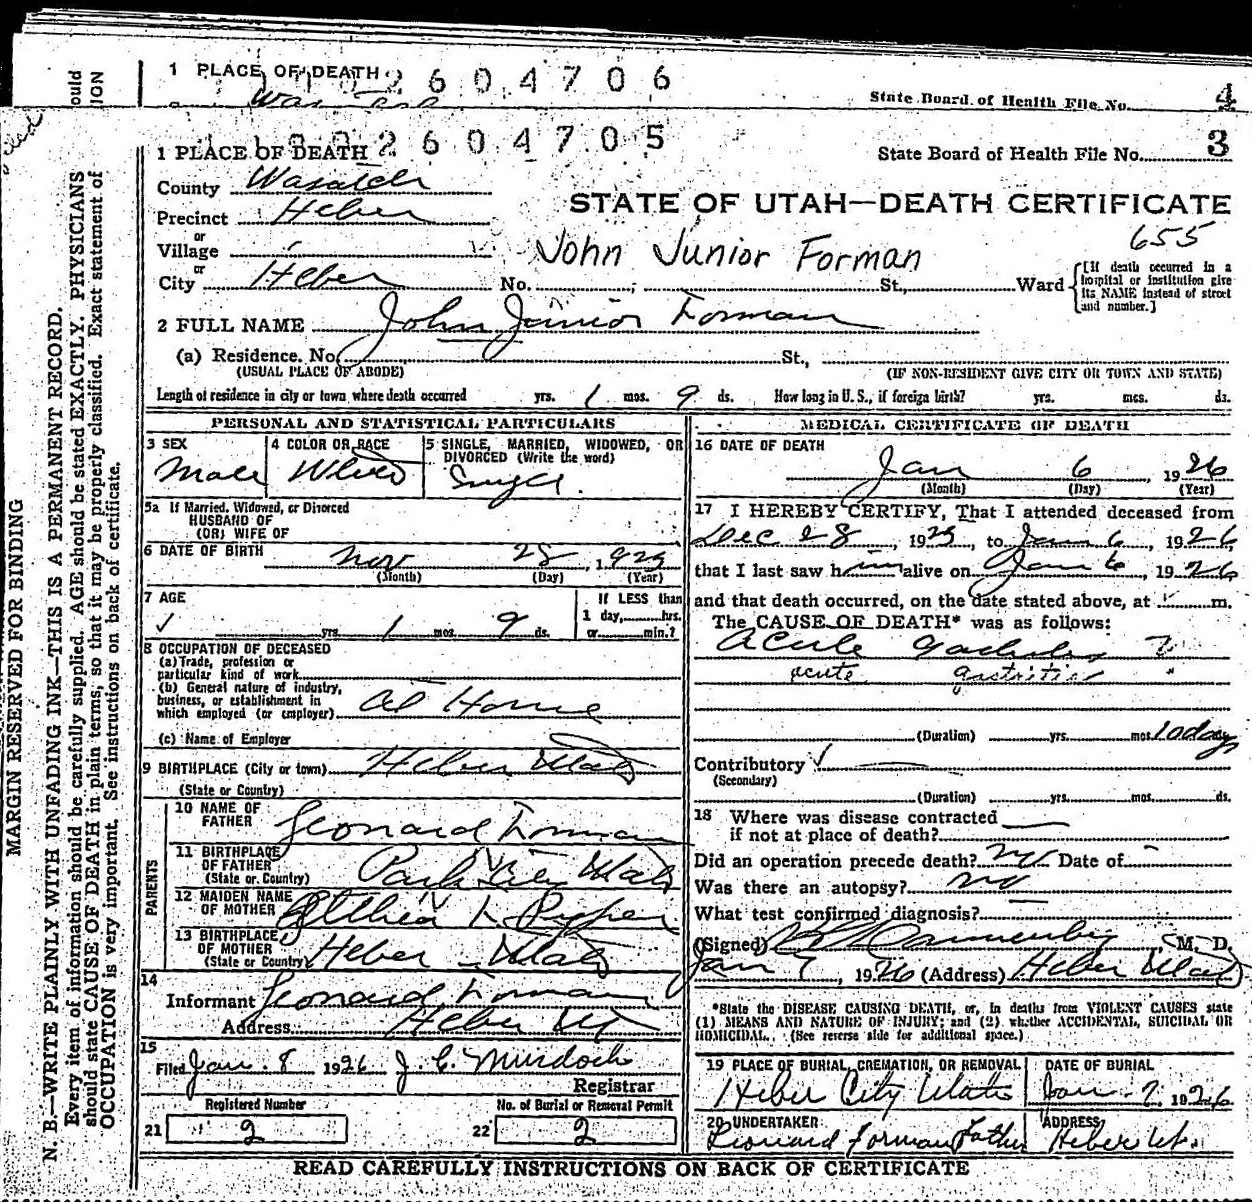 ould
ION
1 PLACE OF DEATH
2604706
State Board of Health File No. 4
2604705
1 PLACE OF DEATH
State Board of Health File No. 3
County Wasatch
STATE OF UTAH—DEATH CERTIFICATE
Precinct Heber
655
or
Village
John Junior Forman
or
City Heber No. St., Ward
[If death occurred in a
hospital or institution give
its NAME instead of street
and number.]
2 FULL NAME John Junior Forman
(a) Residence. No. St.,
(USUAL PLACE OF ABODE) (IF NON-RESIDENT GIVE CITY OR TOWN AND STATE)
Length of residence in city or town where death occurred yrs. 1 mos. 9 ds. How long in U. S., if foreign birth? yrs. mos. ds.
PERSONAL AND STATISTICAL PARTICULARS
3 SEX
Male
4 COLOR OR RACE
White
5 SINGLE, MARRIED, WIDOWED, OR
DIVORCED (Write the word)
Single.
5a If Married, Widowed, or Divorced
HUSBAND OF
(OR) WIFE OF
6 DATE OF BIRTH Nov 28, 1925
(Month) (Day) (Year)
7 AGE
yrs. 1 mos. 9 ds.
If LESS than
1 day, hrs.
or min.?
8 OCCUPATION OF DECEASED
(a) Trade, profession or
particular kind of work
(b) General nature of industry,
business, or establishment in
which employed (or employer) At Home
(c) Name of Employer
9 BIRTHPLACE (City or town) Heber Utah
(State or Country)
PARENTS
10 NAME OF
FATHER Leonard Forman
11 BIRTHPLACE
OF FATHER
(State or Country) Park City Utah
12 MAIDEN NAME
OF MOTHER
13 BIRTHPLACE
OF MOTHER
(State or Country) Heber Utah
14
Informant Leonard Forman
Address Heber Ut
15
Filed Jan. 8 1926 J. C. Murdoch
Registrar
Registered Number
21 2
No. of Burial or Removal Permit
22 2
MEDICAL CERTIFICATE OF DEATH
16 DATE OF DEATH
Jan 6 1926
(Month) (Day) (Year)
17 I HEREBY CERTIFY, That I attended deceased from
Dec 28, 1925, to Jan 6, 1926,
that I last saw him alive on Jan 6, 1926
and that death occurred, on the date stated above, at m.
The CAUSE OF DEATH* was as follows:
Acute Gastritis ?
acute gastritis "
(Duration) yrs. mos. 10 days
Contributory
(Secondary)
(Duration) yrs. mos. ds.
18 Where was disease contracted
if not at place of death?
Did an operation precede death? no Date of
Was there an autopsy? no
What test confirmed diagnosis?
(Signed) M. D.
Jan 7, 1926 (Address) Heber Utah
*State the DISEASE CAUSING DEATH, or, in deaths from VIOLENT CAUSES state
(1) MEANS AND NATURE OF INJURY; and (2) whether ACCIDENTAL, SUICIDAL OR
HOMICIDAL. (See reverse side for additional space.)
19 PLACE OF BURIAL, CREMATION, OR REMOVAL
Heber City Utah
DATE OF BURIAL
Jan. 7. 1926.
20 UNDERTAKER
Leonard Forman Father
ADDRESS
Heber Ut.
READ CAREFULLY INSTRUCTIONS ON BACK OF CERTIFICATE
MARGIN RESERVED FOR BINDING
N. B.—WRITE PLAINLY WITH UNFADING INK—THIS IS A PERMANENT RECORD.
Every item of information should be carefully supplied. AGE should be stated EXACTLY. PHYSICIANS
should state CAUSE OF DEATH in plain terms, so that it may be properly classified. Exact statement of
OCCUPATION is very important. See instructions on back of certificate.